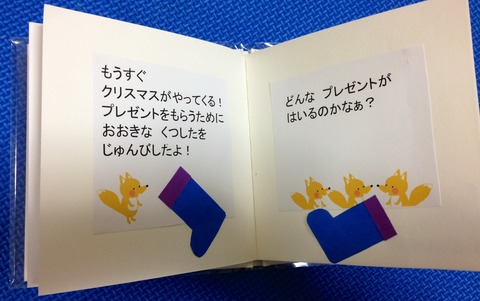 もうすぐ
クリスマスがやってくる！
プレゼントをもらうために
おおきな くつしたを
じゅんびしたよ！
どんな プレゼントが
はいるのかなぁ？